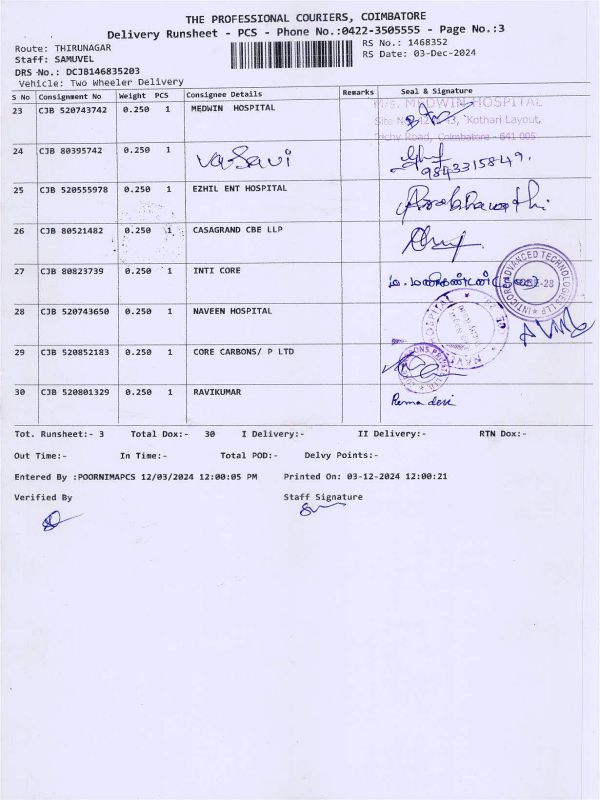 THE PROFESSIONAL COURIERS, COIMBATORE
Delivery Runsheet - PCS - Phone No.:0422-3505555 - Page No.:3
Route: THIRUNAGAR RS No.: 1468352
Staff: SAMUVEL RS Date: 03-Dec-2024
DRS No.: DCJB146835203
Vehicle: Two Wheeler Delivery
S No Consignment No Weight PCS Consignee Details Remarks Seal & Signature
23 CJB 520743742 0.250 1 MEDWIN HOSPITAL
M/s. MEDWIN HOSPITAL
Kothari Layout,
Coimbatore - 641 005
24 CJB 80395742 0.250 1 Vasavi
9843315849.
25 CJB 520555978 0.250 1 EZHIL ENT HOSPITAL
26 CJB 80521482 0.250 1 CASAGRAND CBE LLP
27 CJB 80823739 0.250 1 INTI CORE
INTCORE ADVANCED TECHNOLOGIES LLP
28 CJB 520743650 0.250 1 NAVEEN HOSPITAL
29 CJB 520852183 0.250 1 CORE CARBONS/ P LTD
30 CJB 520801329 0.250 1 RAVIKUMAR Rema devi
Tot. Runsheet:- 3 Total Dox:- 30 I Delivery:- II Delivery:- RTN Dox:-
Out Time:- In Time:- Total POD:- Delvy Points:-
Entered By :POORNIMAPCS 12/03/2024 12:00:05 PM Printed On: 03-12-2024 12:00:21
Verified By Staff Signature